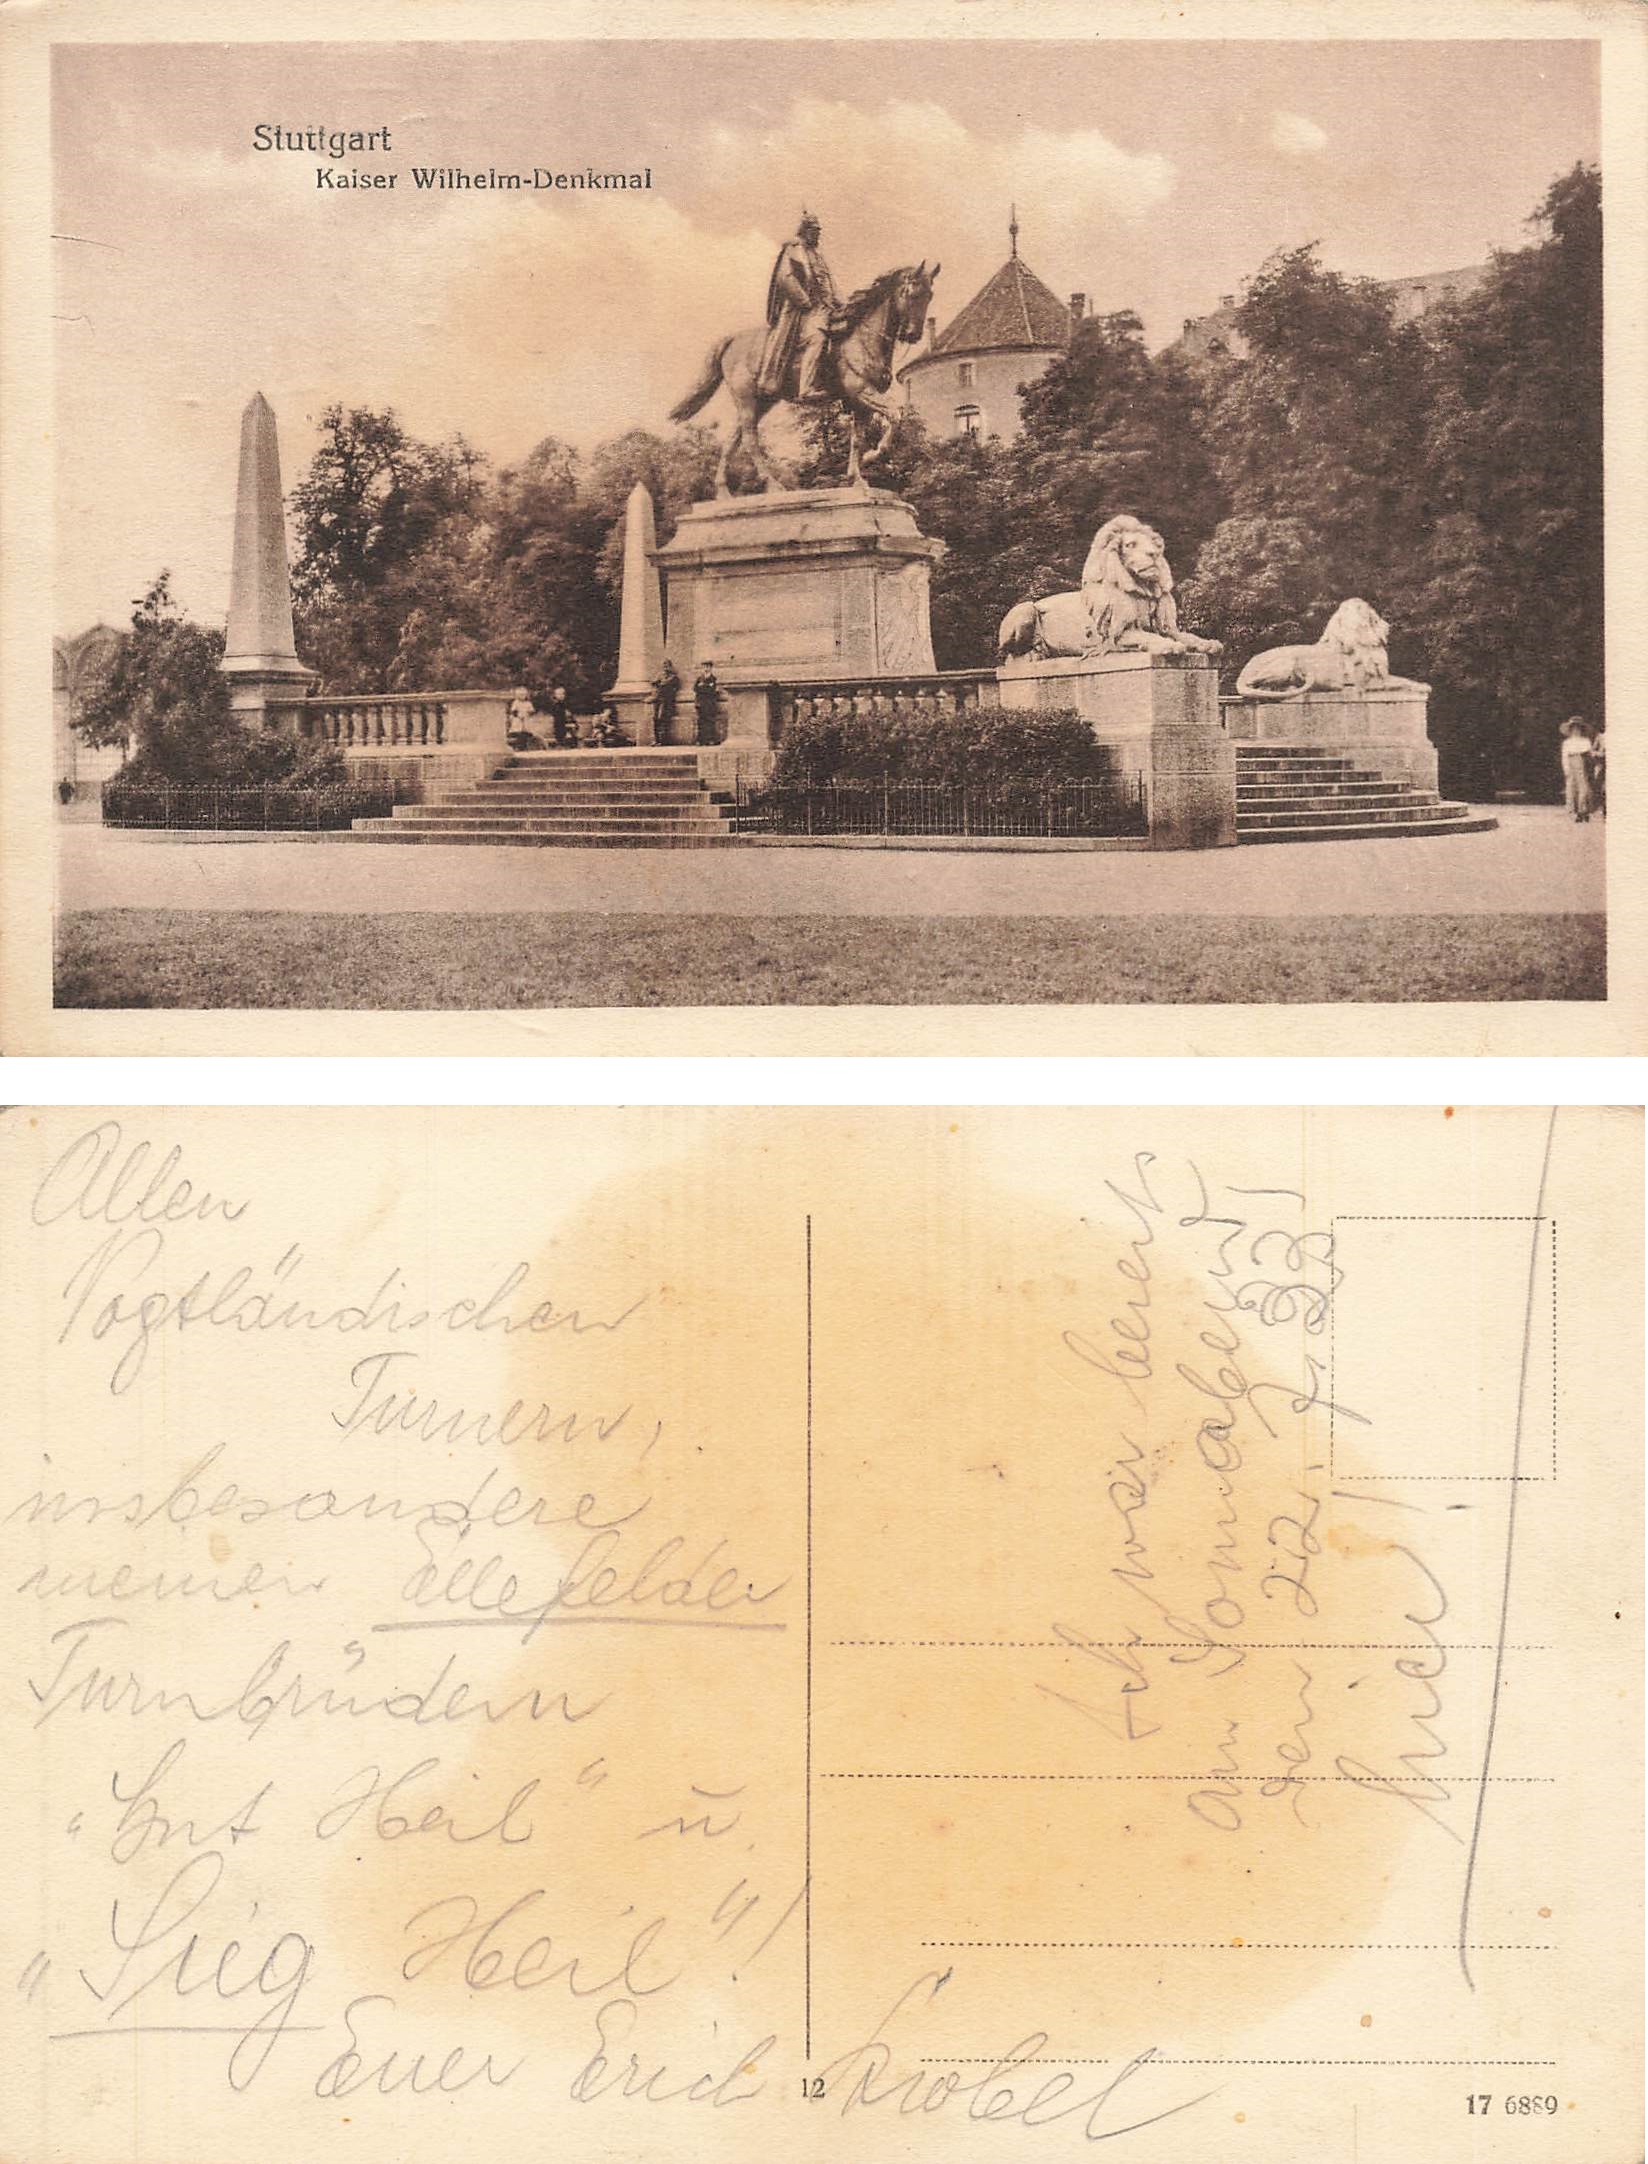 Stuttgart
Kaiser Wilhelm-Denkmal
Allen
Vogtländischen
Turnern,
insbesondere
meinen Ellefelder
Turnbrüdern
"Gut Heil" u.
"Sieg Heil"!
Euer Erich
12
Ich war bereits
am Sonnabend
den 22. 7. 33
hier!
17 6889